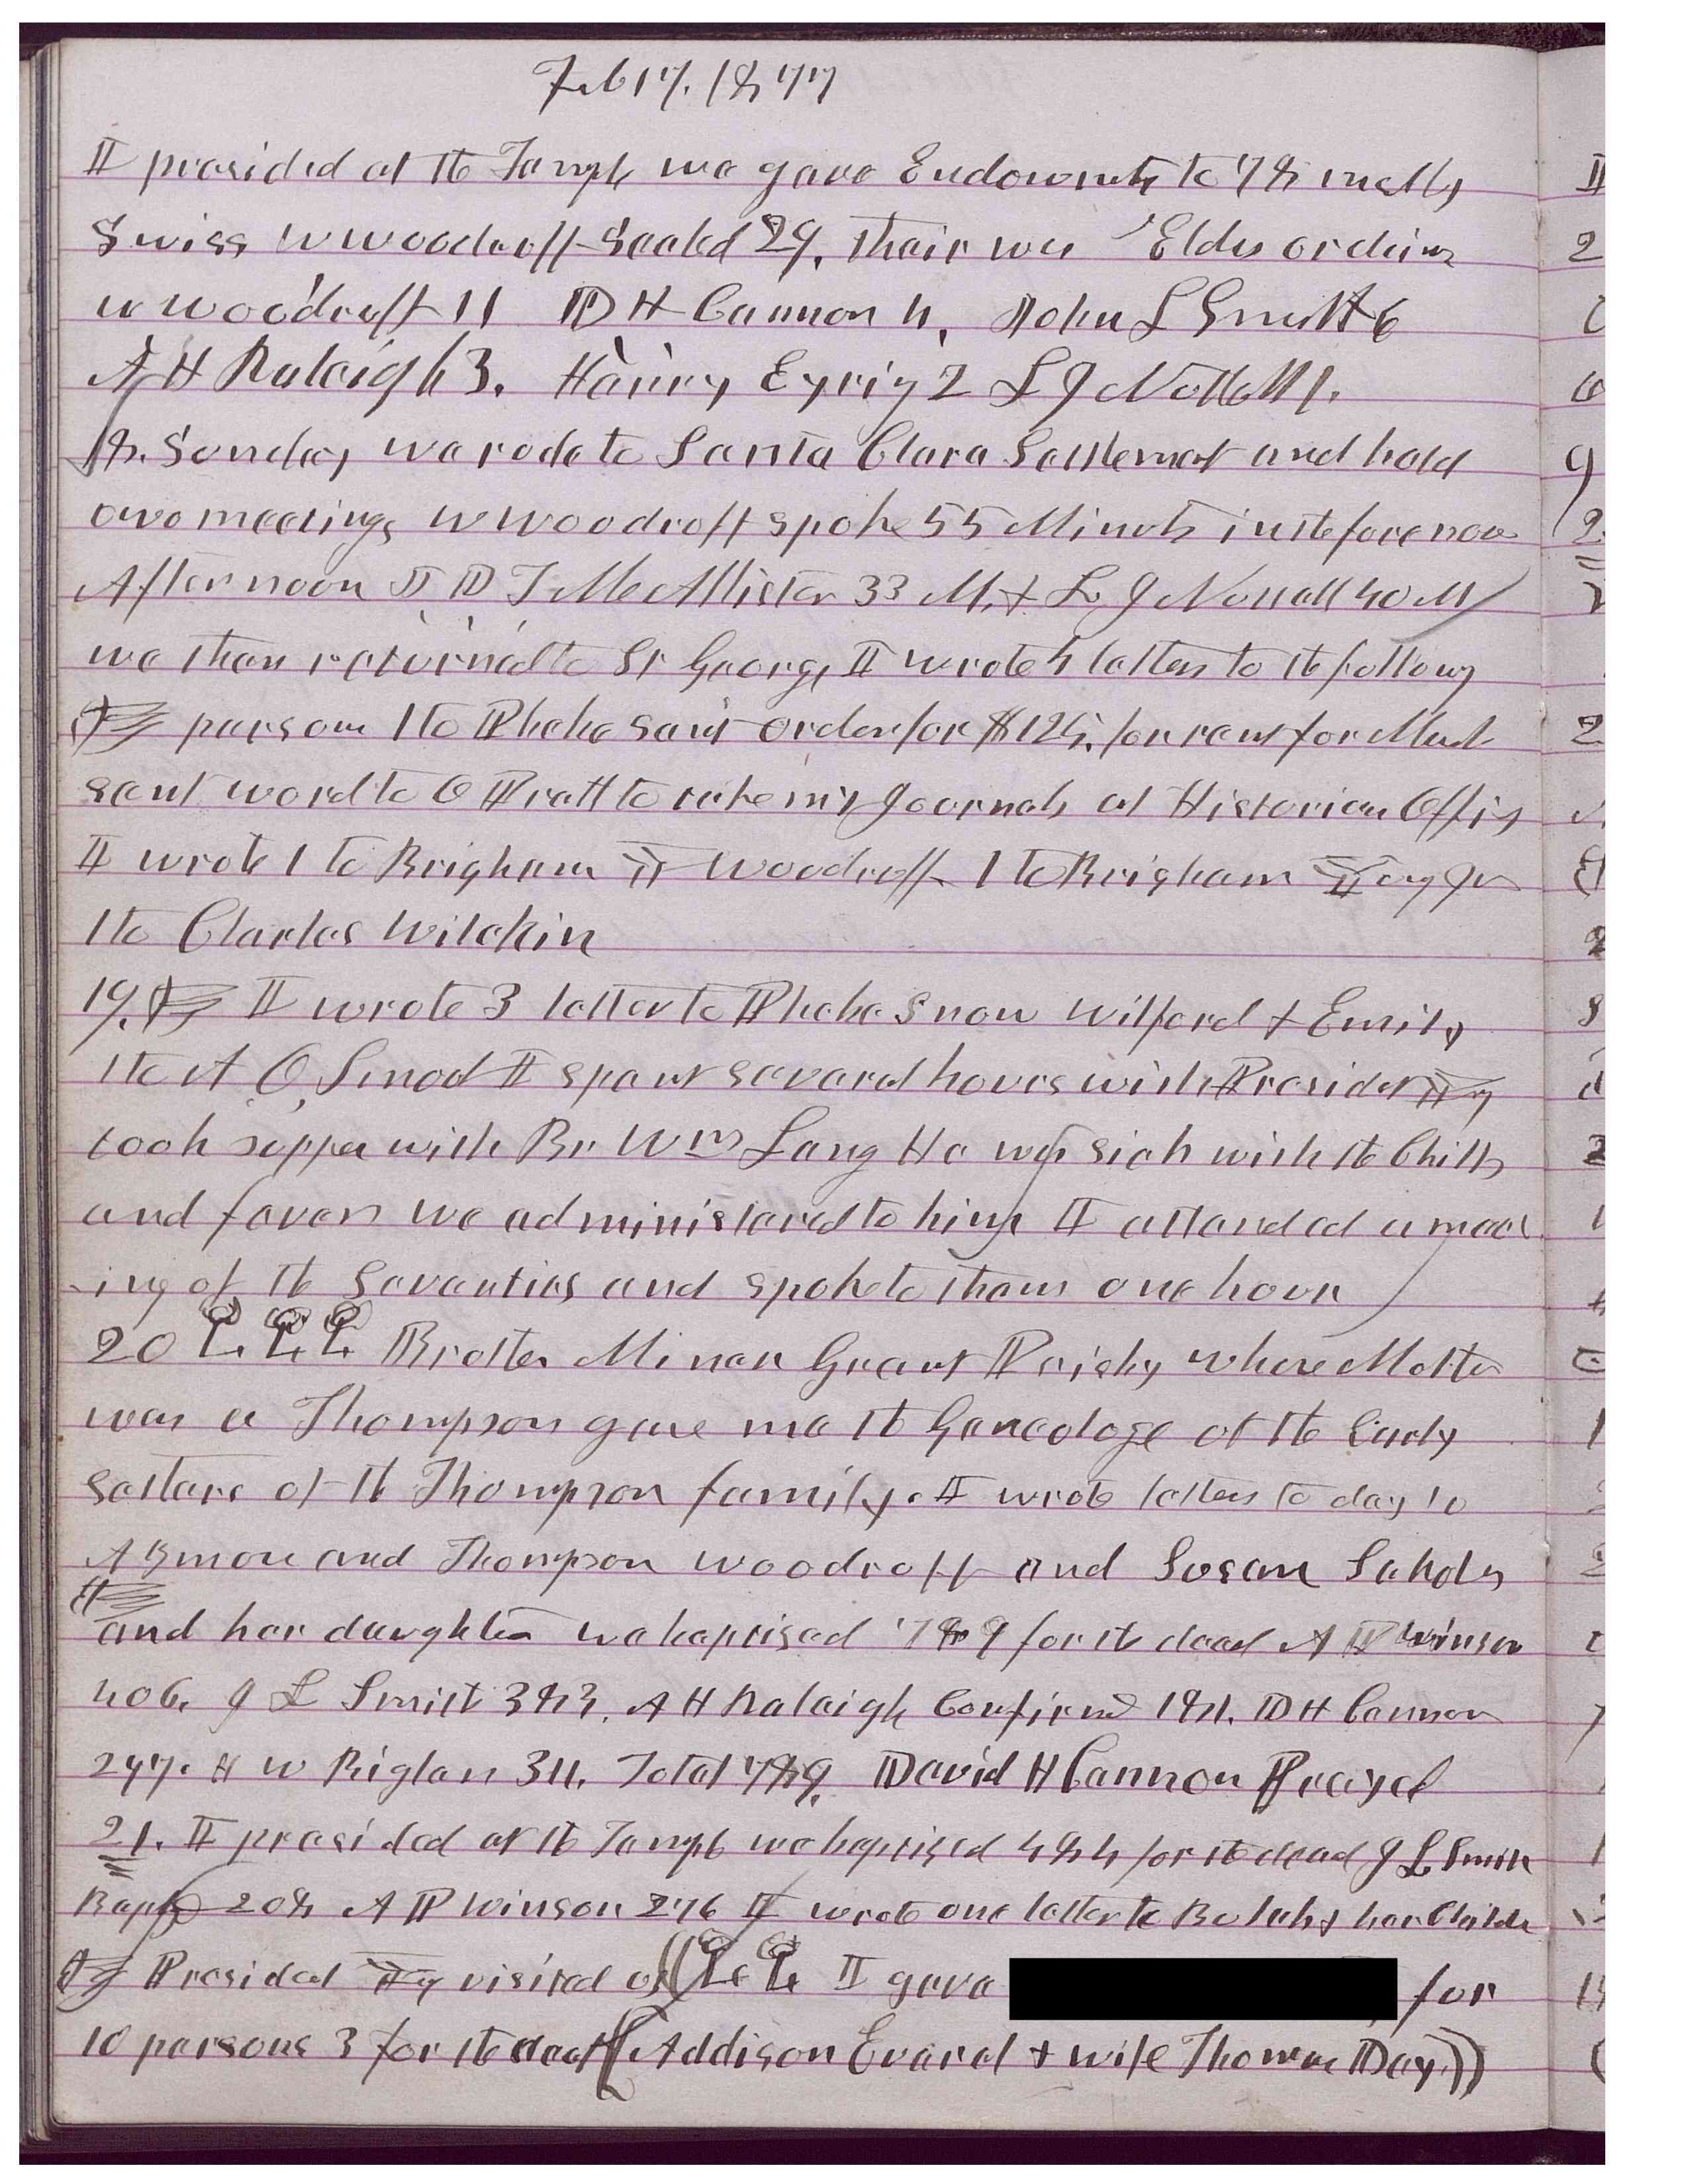 Feb 17. 1877
I presided at the Temple we gave Endowmts to 78 mostly
Swiss W Woodruff Sealed 29. Thair wer Elders ordein
W Woodruff 11 D H Cannon 4, John L Smith 6
A H Raleigh 3. Hariry Eyring 2 L J Nuttall 1.
18. Sunday we rode to Santa Clara Settlemet and held
two meetings W Woodruff spoke 55 Minuts in the forenoon
Afternoon J D T McAllister 33 M, + L J Nuttall 40 M
we then returned to St George, I wrote 4 letters to the following
persons 1 to Phebe sent order for $125, for rent for Meat
sent word to O Pratt to take my Journals at Historian Office
I wrote 1 to Brigham Y Woodruff 1 to Brigham Young Jr
1 to Charles Wilckin
19. I wrote 3 letter to Phebe Snow Wilford & Emily
1 to A O Smoot I spent several hours with Presidet Young
took supper with Br Wm Lang He was sick with the Chills
and fever we administered to him I attended a meet
-ing of the Seventies and spoke to them one hour
20 Brother Miner Grant Prisby whose Mother
was a Thompson gave me the Geneologe of the Early
settlers of the Thompson family. I wrote letters to day to
Azmon and Thompson Woodruff and Susan
and her daughter we baptised 789 for the dead A P Winsor
406. J L Smith 383. A H Raleigh Confirmd 181. D H Cannon
247. H W Biglar 311. Total 789. David H Cannon Prayed
21. I presided at the Temple we baptised 484 for the dead J L Smith
Bapt 208 A P Winson 276 I wrote one letter to Bulah & her Childn
Presidet Young visited us I gave for
10 persons 3 for the dead (Addison Evard + wife Thomas Day))